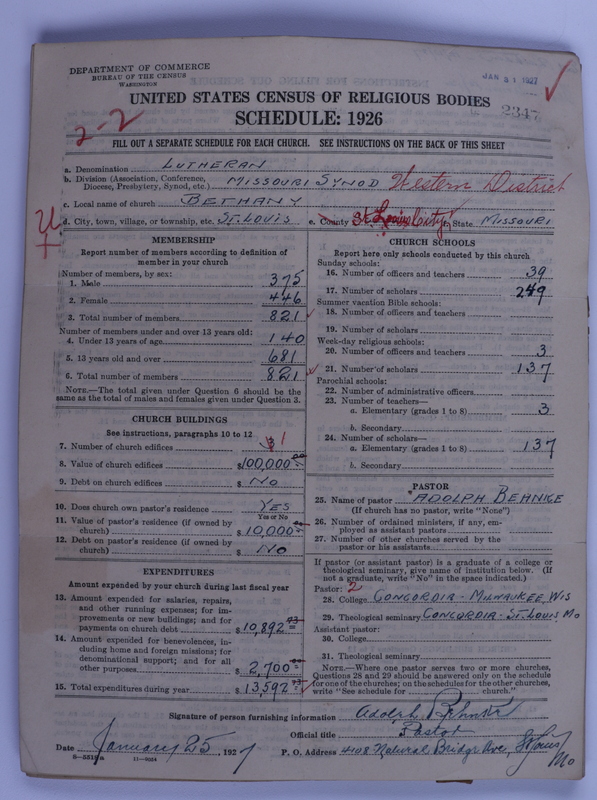 DEPARTMENT OF COMMERCE
BUREAU OF THE CENSUS
WASHINGTON
JAN 31 1927
UNITED STATES CENSUS OF RELIGIOUS BODIES
2347
SCHEDULE: 1926
2-2
FILL OUT A SEPARATE SCHEDULE FOR EACH CHURCH. SEE INSTRUCTIONS ON THE BACK OF THIS SHEET
a. Denomination LUTHERAN
b. Division (Association, Conference, Diocese, Presbytery, Synod, etc.) MISSOURI SYNOD Western District
c. Local name of church BETHANY
d. City, town, village, or township, etc. ST. LOUIS e. County St. Louis City f. State MISSOURI
MEMBERSHIP
Report number of members according to definition of
member in your church
Number of members, by sex:
1. Male 375
2. Female 446
3. Total number of members 821
Number of members under and over 13 years old:
4. Under 13 years of age 140
5. 13 years old and over 681
6. Total number of members 821
NOTE.—The total given under Question 6 should be the
same as the total of males and females given under Question 3.
CHURCH BUILDINGS
See instructions, paragraphs 10 to 12
7. Number of church edifices 1
8. Value of church edifices $100,000
9. Debt on church edifices $ NO
10. Does church own pastor's residence YES
Yes or No
11. Value of pastor's residence (if owned by
church) $10,000
12. Debt on pastor's residence (if owned by
church) $ NO
EXPENDITURES
Amount expended by your church during last fiscal year
13. Amount expended for salaries, repairs,
and other running expenses; for im-
provements or new buildings; and for
payments on church debt $10,892 73
14. Amount expended for benevolences, in-
cluding home and foreign missions; for
denominational support; and for all
other purposes $2,700
15. Total expenditures during year $13,592 73
CHURCH SCHOOLS
Report here only schools conducted by this church
Sunday schools:
16. Number of officers and teachers 39
17. Number of scholars 249
Summer vacation Bible schools:
18. Number of officers and teachers
19. Number of scholars
Week-day religious schools:
20. Number of officers and teachers 3
21. Number of scholars 137
Parochial schools:
22. Number of administrative officers
23. Number of teachers—
a. Elementary (grades 1 to 8) 3
b. Secondary
24. Number of scholars—
a. Elementary (grades 1 to 8) 137
b. Secondary
PASTOR
25. Name of pastor ADOLPH BEHNKE
(If church has no pastor, write "None")
26. Number of ordained ministers, if any, em-
ployed as assistant pastors
27. Number of other churches served by the
pastor or his assistants
If pastor (or assistant pastor) is a graduate of a college or
theological seminary, give name of institution below. (If
not a graduate, write "No" in the space indicated.)
Pastor: 2
28. College CONCORDIA - MILWAUKEE, WIS
29. Theological seminary CONCORDIA - ST. LOUIS MO
Assistant pastor:
30. College
31. Theological seminary
NOTE.—Where one pastor serves two or more churches,
Questions 28 and 29 should be answered only on the schedule
for one of the churches; on the schedules for the other churches,
write "See schedule for church."
Signature of person furnishing information Adolph Behnke
Official title Pastor
Date January 25, 1927 P. O. Address 4108 Natural Bridge Ave, St. Louis Mo
8-5818a 11-9024